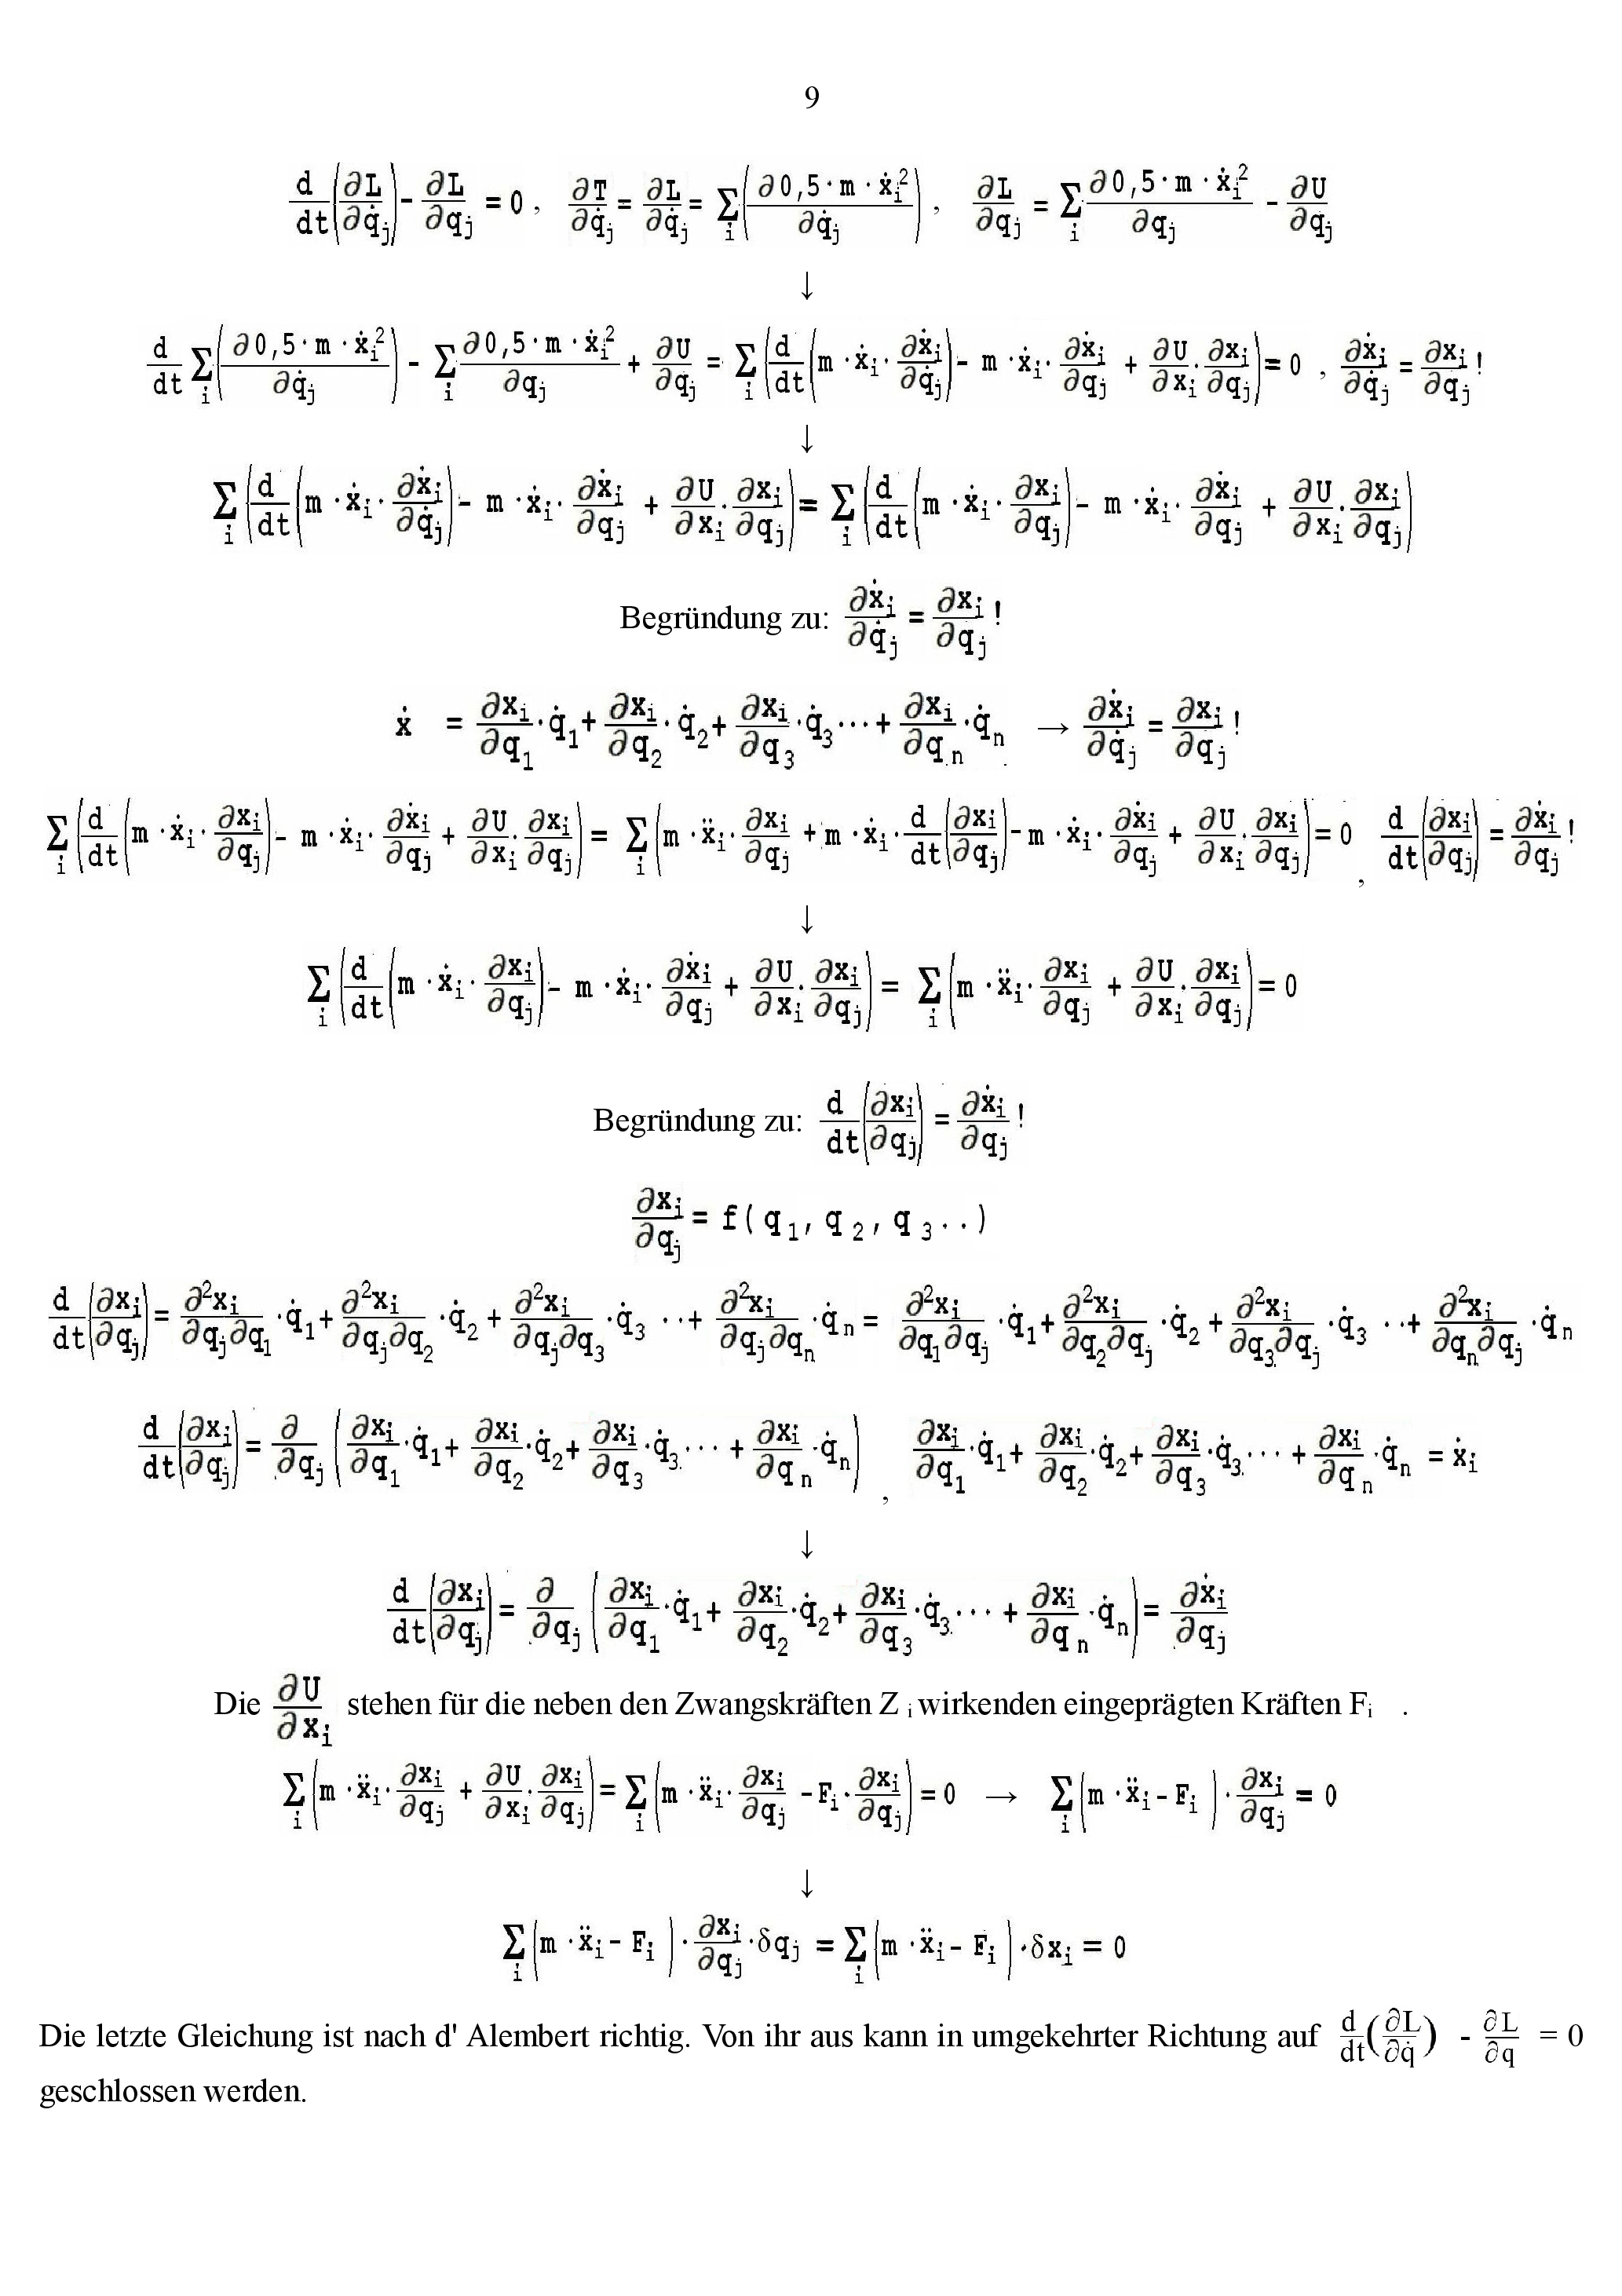 9
d/dt(∂L/∂q̇ⱼ) - ∂L/∂qⱼ = 0 , ∂T/∂q̇ⱼ = ∂L/∂q̇ⱼ = Σᵢ(∂0,5·m·ẋᵢ²/∂q̇ⱼ) , ∂L/∂qⱼ = Σᵢ ∂0,5·m·ẋᵢ²/∂qⱼ - ∂U/∂qⱼ
↓
d/dt Σᵢ(∂0,5·m·ẋᵢ²/∂q̇ⱼ) - Σᵢ ∂0,5·m·ẋᵢ²/∂qⱼ + ∂U/∂qⱼ = Σᵢ(d/dt(m·ẋᵢ·∂ẋᵢ/∂q̇ⱼ) - m·ẋᵢ·∂ẋᵢ/∂qⱼ + ∂U/∂xᵢ·∂xᵢ/∂qⱼ) = 0 , ∂ẋᵢ/∂q̇ⱼ = ∂xᵢ/∂qⱼ !
↓
Σᵢ(d/dt(m·ẋᵢ·∂ẋᵢ/∂q̇ⱼ) - m·ẋᵢ·∂ẋᵢ/∂qⱼ + ∂U/∂xᵢ·∂xᵢ/∂qⱼ) = Σᵢ(d/dt(m·ẋᵢ·∂xᵢ/∂qⱼ) - m·ẋᵢ·∂ẋᵢ/∂qⱼ + ∂U/∂xᵢ·∂xᵢ/∂qⱼ)
Begründung zu: ∂ẋᵢ/∂q̇ⱼ = ∂xᵢ/∂qⱼ !
ẋ = ∂xᵢ/∂q₁·q̇₁ + ∂xᵢ/∂q₂·q̇₂ + ∂xᵢ/∂q₃·q̇₃ ··· + ∂xᵢ/∂qₙ·q̇ₙ → ∂ẋᵢ/∂q̇ⱼ = ∂xᵢ/∂qⱼ !
Σᵢ(d/dt(m·ẋᵢ·∂xᵢ/∂qⱼ) - m·ẋᵢ·∂ẋᵢ/∂qⱼ + ∂U/∂xᵢ·∂xᵢ/∂qⱼ) = Σᵢ(m·ẍᵢ·∂xᵢ/∂qⱼ + m·ẋᵢ·d/dt(∂xᵢ/∂qⱼ) - m·ẋᵢ·∂ẋᵢ/∂qⱼ + ∂U/∂xᵢ·∂xᵢ/∂qⱼ) = 0 , d/dt(∂xᵢ/∂qⱼ) = ∂ẋᵢ/∂qⱼ !
↓
Σᵢ(d/dt(m·ẋᵢ·∂xᵢ/∂qⱼ) - m·ẋᵢ·∂ẋᵢ/∂qⱼ + ∂U/∂xᵢ·∂xᵢ/∂qⱼ) = Σᵢ(m·ẍᵢ·∂xᵢ/∂qⱼ + ∂U/∂xᵢ·∂xᵢ/∂qⱼ) = 0
Begründung zu: d/dt(∂xᵢ/∂qⱼ) = ∂ẋᵢ/∂qⱼ !
∂xᵢ/∂qⱼ = f(q₁, q₂, q₃..)
d/dt(∂xᵢ/∂qⱼ) = ∂²xᵢ/∂qⱼ∂q₁·q̇₁ + ∂²xᵢ/∂qⱼ∂q₂·q̇₂ + ∂²xᵢ/∂qⱼ∂q₃·q̇₃ ··+ ∂²xᵢ/∂qⱼ∂qₙ·q̇ₙ = ∂²xᵢ/∂q₁∂qⱼ·q̇₁ + ∂²xᵢ/∂q₂∂qⱼ·q̇₂ + ∂²xᵢ/∂q₃∂qⱼ·q̇₃ ··+ ∂²xᵢ/∂qₙ∂qⱼ·q̇ₙ
d/dt(∂xᵢ/∂qⱼ) = ∂/∂qⱼ (∂xᵢ/∂q₁·q̇₁ + ∂xᵢ/∂q₂·q̇₂ + ∂xᵢ/∂q₃·q̇₃ ··· + ∂xᵢ/∂qₙ·q̇ₙ) , ∂xᵢ/∂q₁·q̇₁ + ∂xᵢ/∂q₂·q̇₂ + ∂xᵢ/∂q₃·q̇₃ ··· + ∂xᵢ/∂qₙ·q̇ₙ = ẋᵢ
↓
d/dt(∂xᵢ/∂qⱼ) = ∂/∂qⱼ (∂xᵢ/∂q₁·q̇₁ + ∂xᵢ/∂q₂·q̇₂ + ∂xᵢ/∂q₃·q̇₃ ··· + ∂xᵢ/∂qₙ·q̇ₙ) = ∂ẋᵢ/∂qⱼ
Die ∂U/∂xᵢ stehen für die neben den Zwangskräften Z ᵢ wirkenden eingeprägten Kräften Fᵢ .
Σᵢ(m·ẍᵢ·∂xᵢ/∂qⱼ + ∂U/∂xᵢ·∂xᵢ/∂qⱼ) = Σᵢ(m·ẍᵢ·∂xᵢ/∂qⱼ - Fᵢ·∂xᵢ/∂qⱼ) = 0 → Σᵢ(m·ẍᵢ - Fᵢ)·∂xᵢ/∂qⱼ = 0
↓
Σᵢ(m·ẍᵢ - Fᵢ)·∂xᵢ/∂qⱼ·δqⱼ = Σᵢ(m·ẍᵢ - Fᵢ)·δxᵢ = 0
Die letzte Gleichung ist nach d' Alembert richtig. Von ihr aus kann in umgekehrter Richtung auf d/dt(∂L/∂q̇) - ∂L/∂q = 0
geschlossen werden.